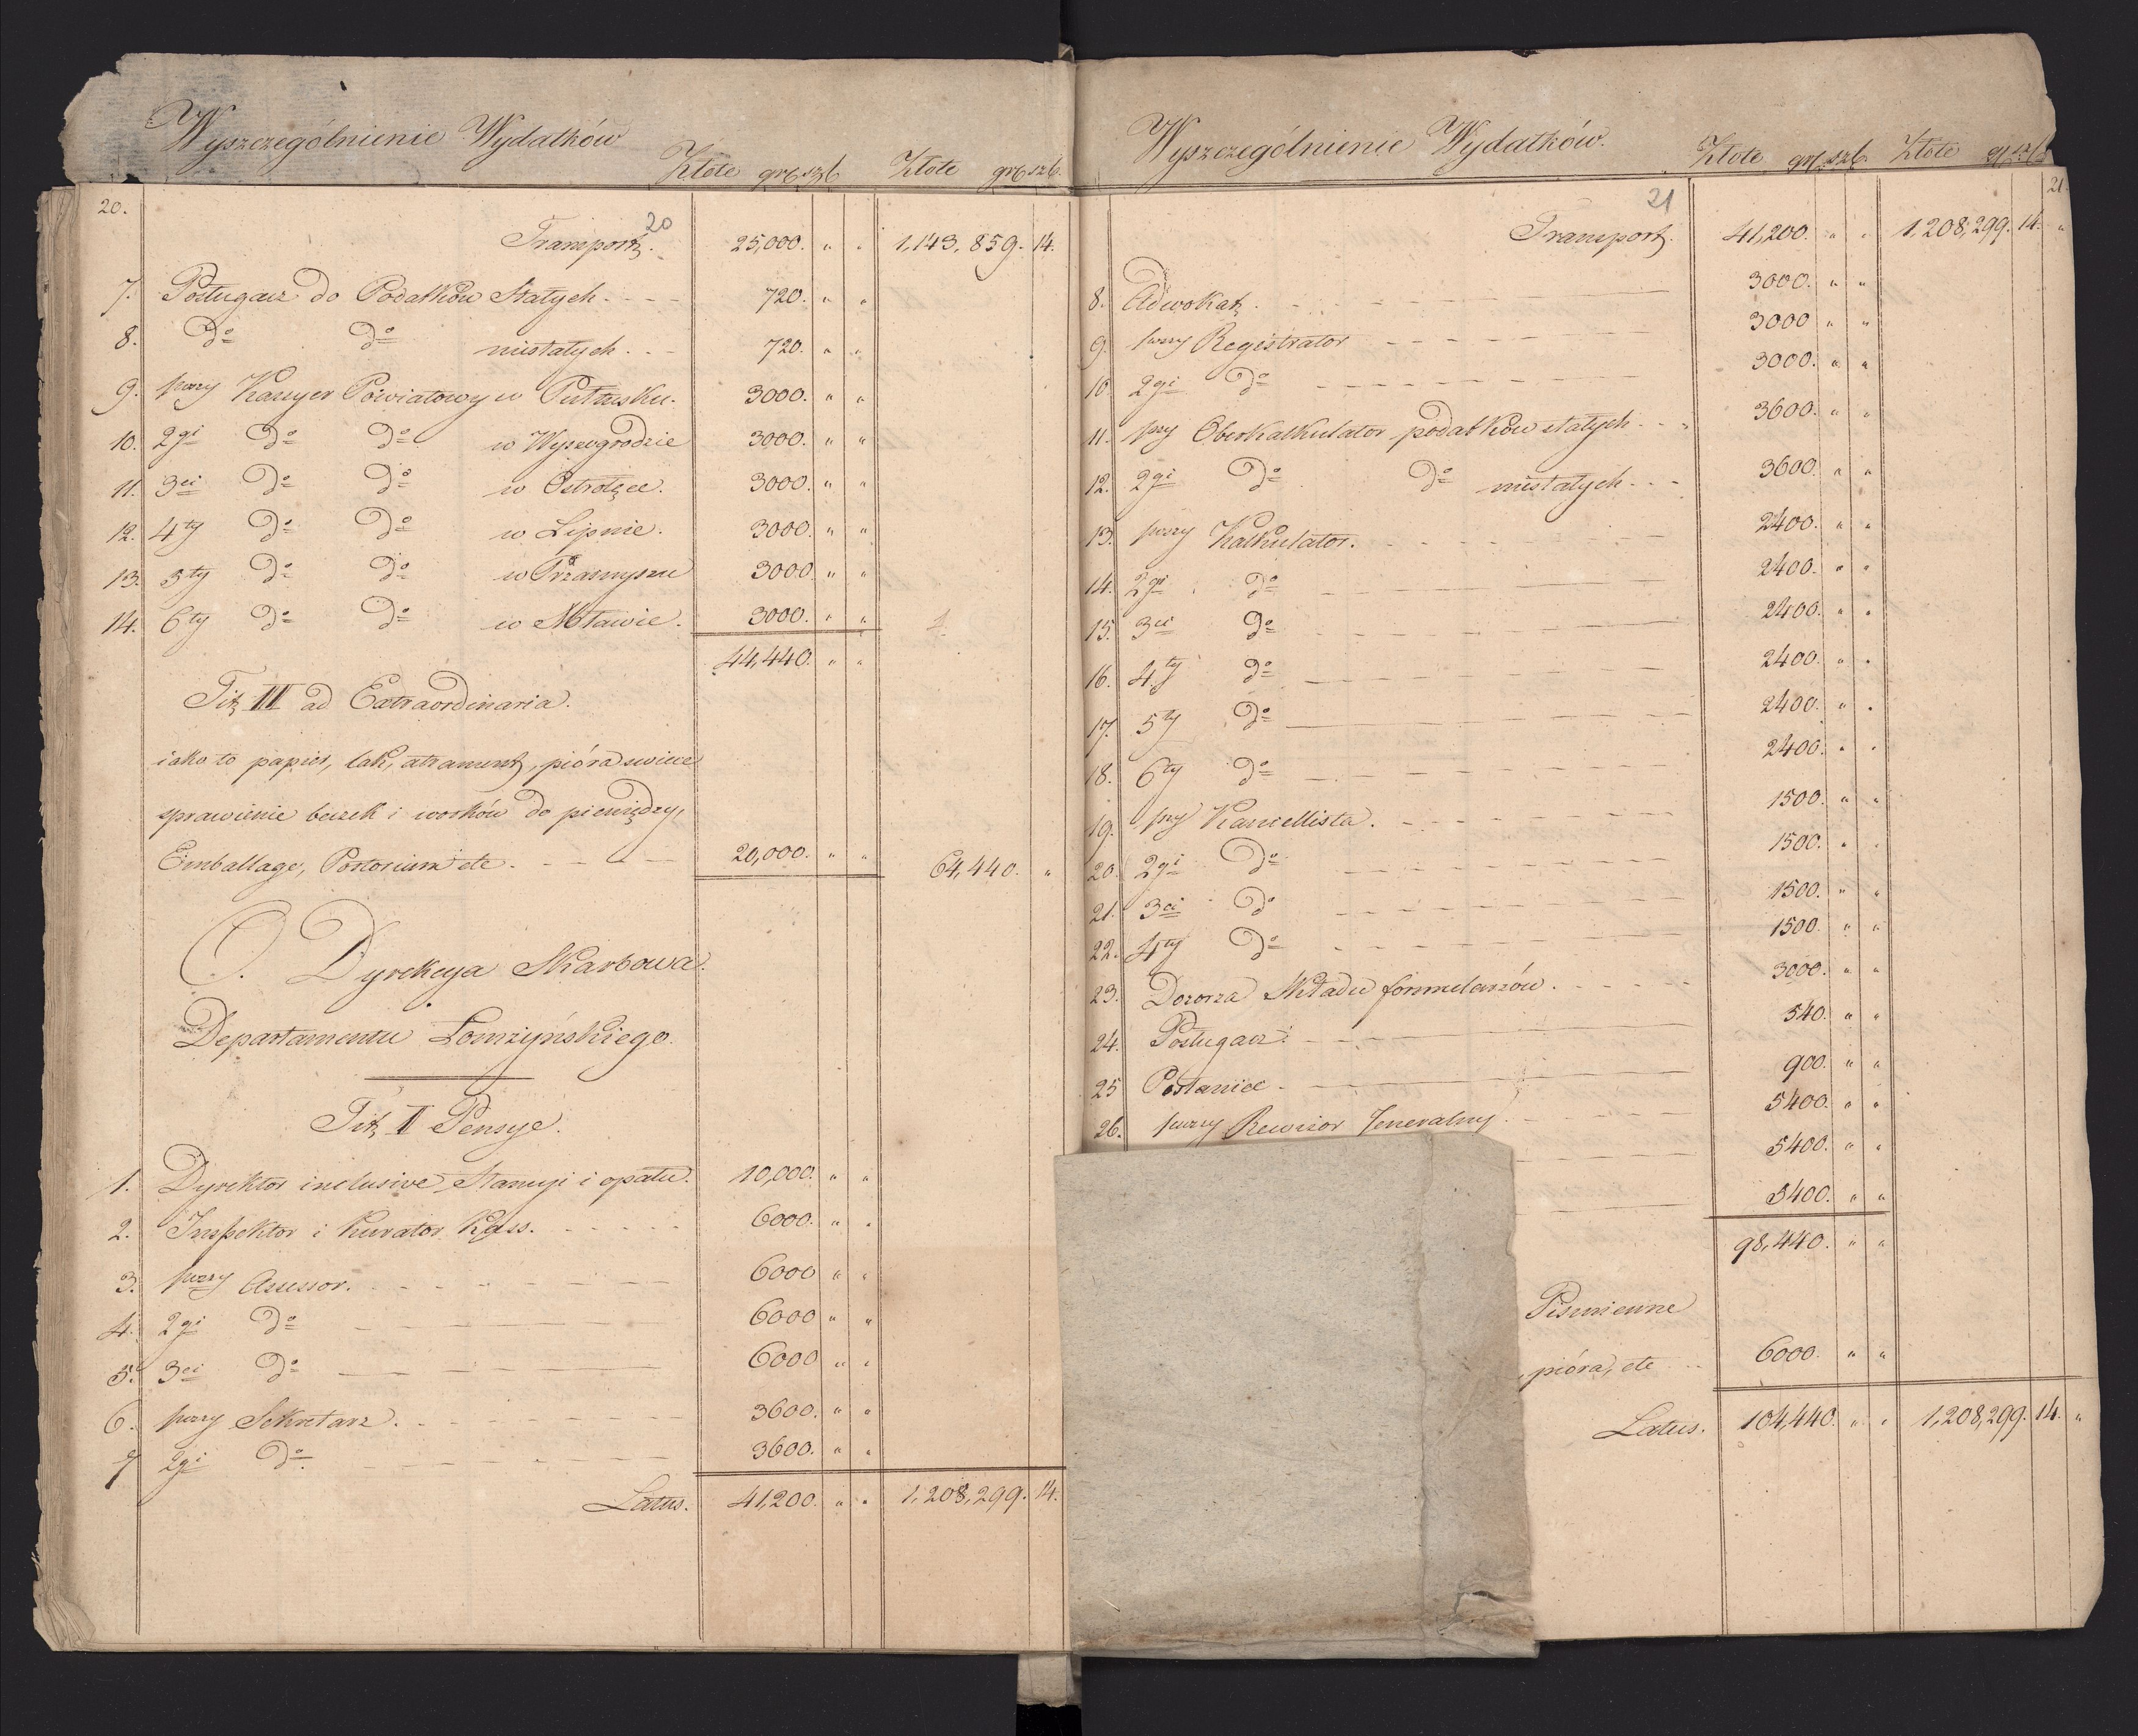 Wyszczególnienie Wydatków Złote gr. szl. Złote gr. szl.
20. 20
Transport. 25,000. " " 1,143,859. 14.
7. Posługacz do Podatków Stałych. 720. " "
8. Do Do niestałych. 720. " "
9. pszy Kassyer Powiatowy w Pułtusku. 3000. " "
10. 2gi Do Do w Wyszogrodzie 3000. " "
11. 3ci Do Do w Ostrołęce. 3000. " "
12. 4ty Do Do w Lipnie. 3000. " "
13. 5ty Do Do w Przasnyszu 3000. " "
14. 6ty Do Do w Mławie. 3000. " "
44,440. " "
Tit III ad Extraordinaria.
iako to papier, lak, atrament, pióra swiece
sprawienie beczek i worków do pieniędzy,
Emballage, Portorium etc. 20,000. " " 64,440. "
O. Dyrekcya Skarbowa
Departamentu Łomżyńskiego.
Tit II Pensye.
1. Dyrektor inclusive Stancyi i opału. 10,000. " "
2. Inspektor i Kurator Kass. 6000. " "
3. pszy Assessor. 6000 " "
4. 2gi Do 6000 " "
5. 3ci Do 6000 " "
6. pszy Sekretarz. 3600. " "
7 2gi Do 3600. " "
Latus. 41,200. " " 1,208,299. 14.
Wyszczególnienie Wydatków. Złote gr. szl. Złote gr. szl.
21 21.
Transport. 41,200. " " 1,208,299. 14. "
8. Adwokat. 3000. " "
9. pszy Registrator 3000 " "
10. 2gi Do 3000. " "
11. pszy Oberkalkulator podatków stałych 3600. " "
12. 2gi Do Do niestałych 3600. " "
13. pszy Kalkulator. 2400. " "
14. 2gi Do 2400. " "
15. 3ci Do 2400. " "
16. 4ty Do 2400. " "
17. 5ty Do 2400. " "
18. 6ty Do 2400. " "
19. pszy Kancellista. 1500. " "
20. 2gi Do 1500. " "
21. 3ci Do 1500. " "
22. 4ty Do 1500. " "
23. Dozorca Składu formularzów. 3000. " "
24. Posługacz. 540. " "
25 Posłaniec. 900. " "
26. pszy Rewizor Jeneralny. 5400. " "
5400. " "
5400. " "
98,440. " "
Piśmienne
pióra, etc 6000. " "
Latus. 104,440. " " 1,208,299. 14. "